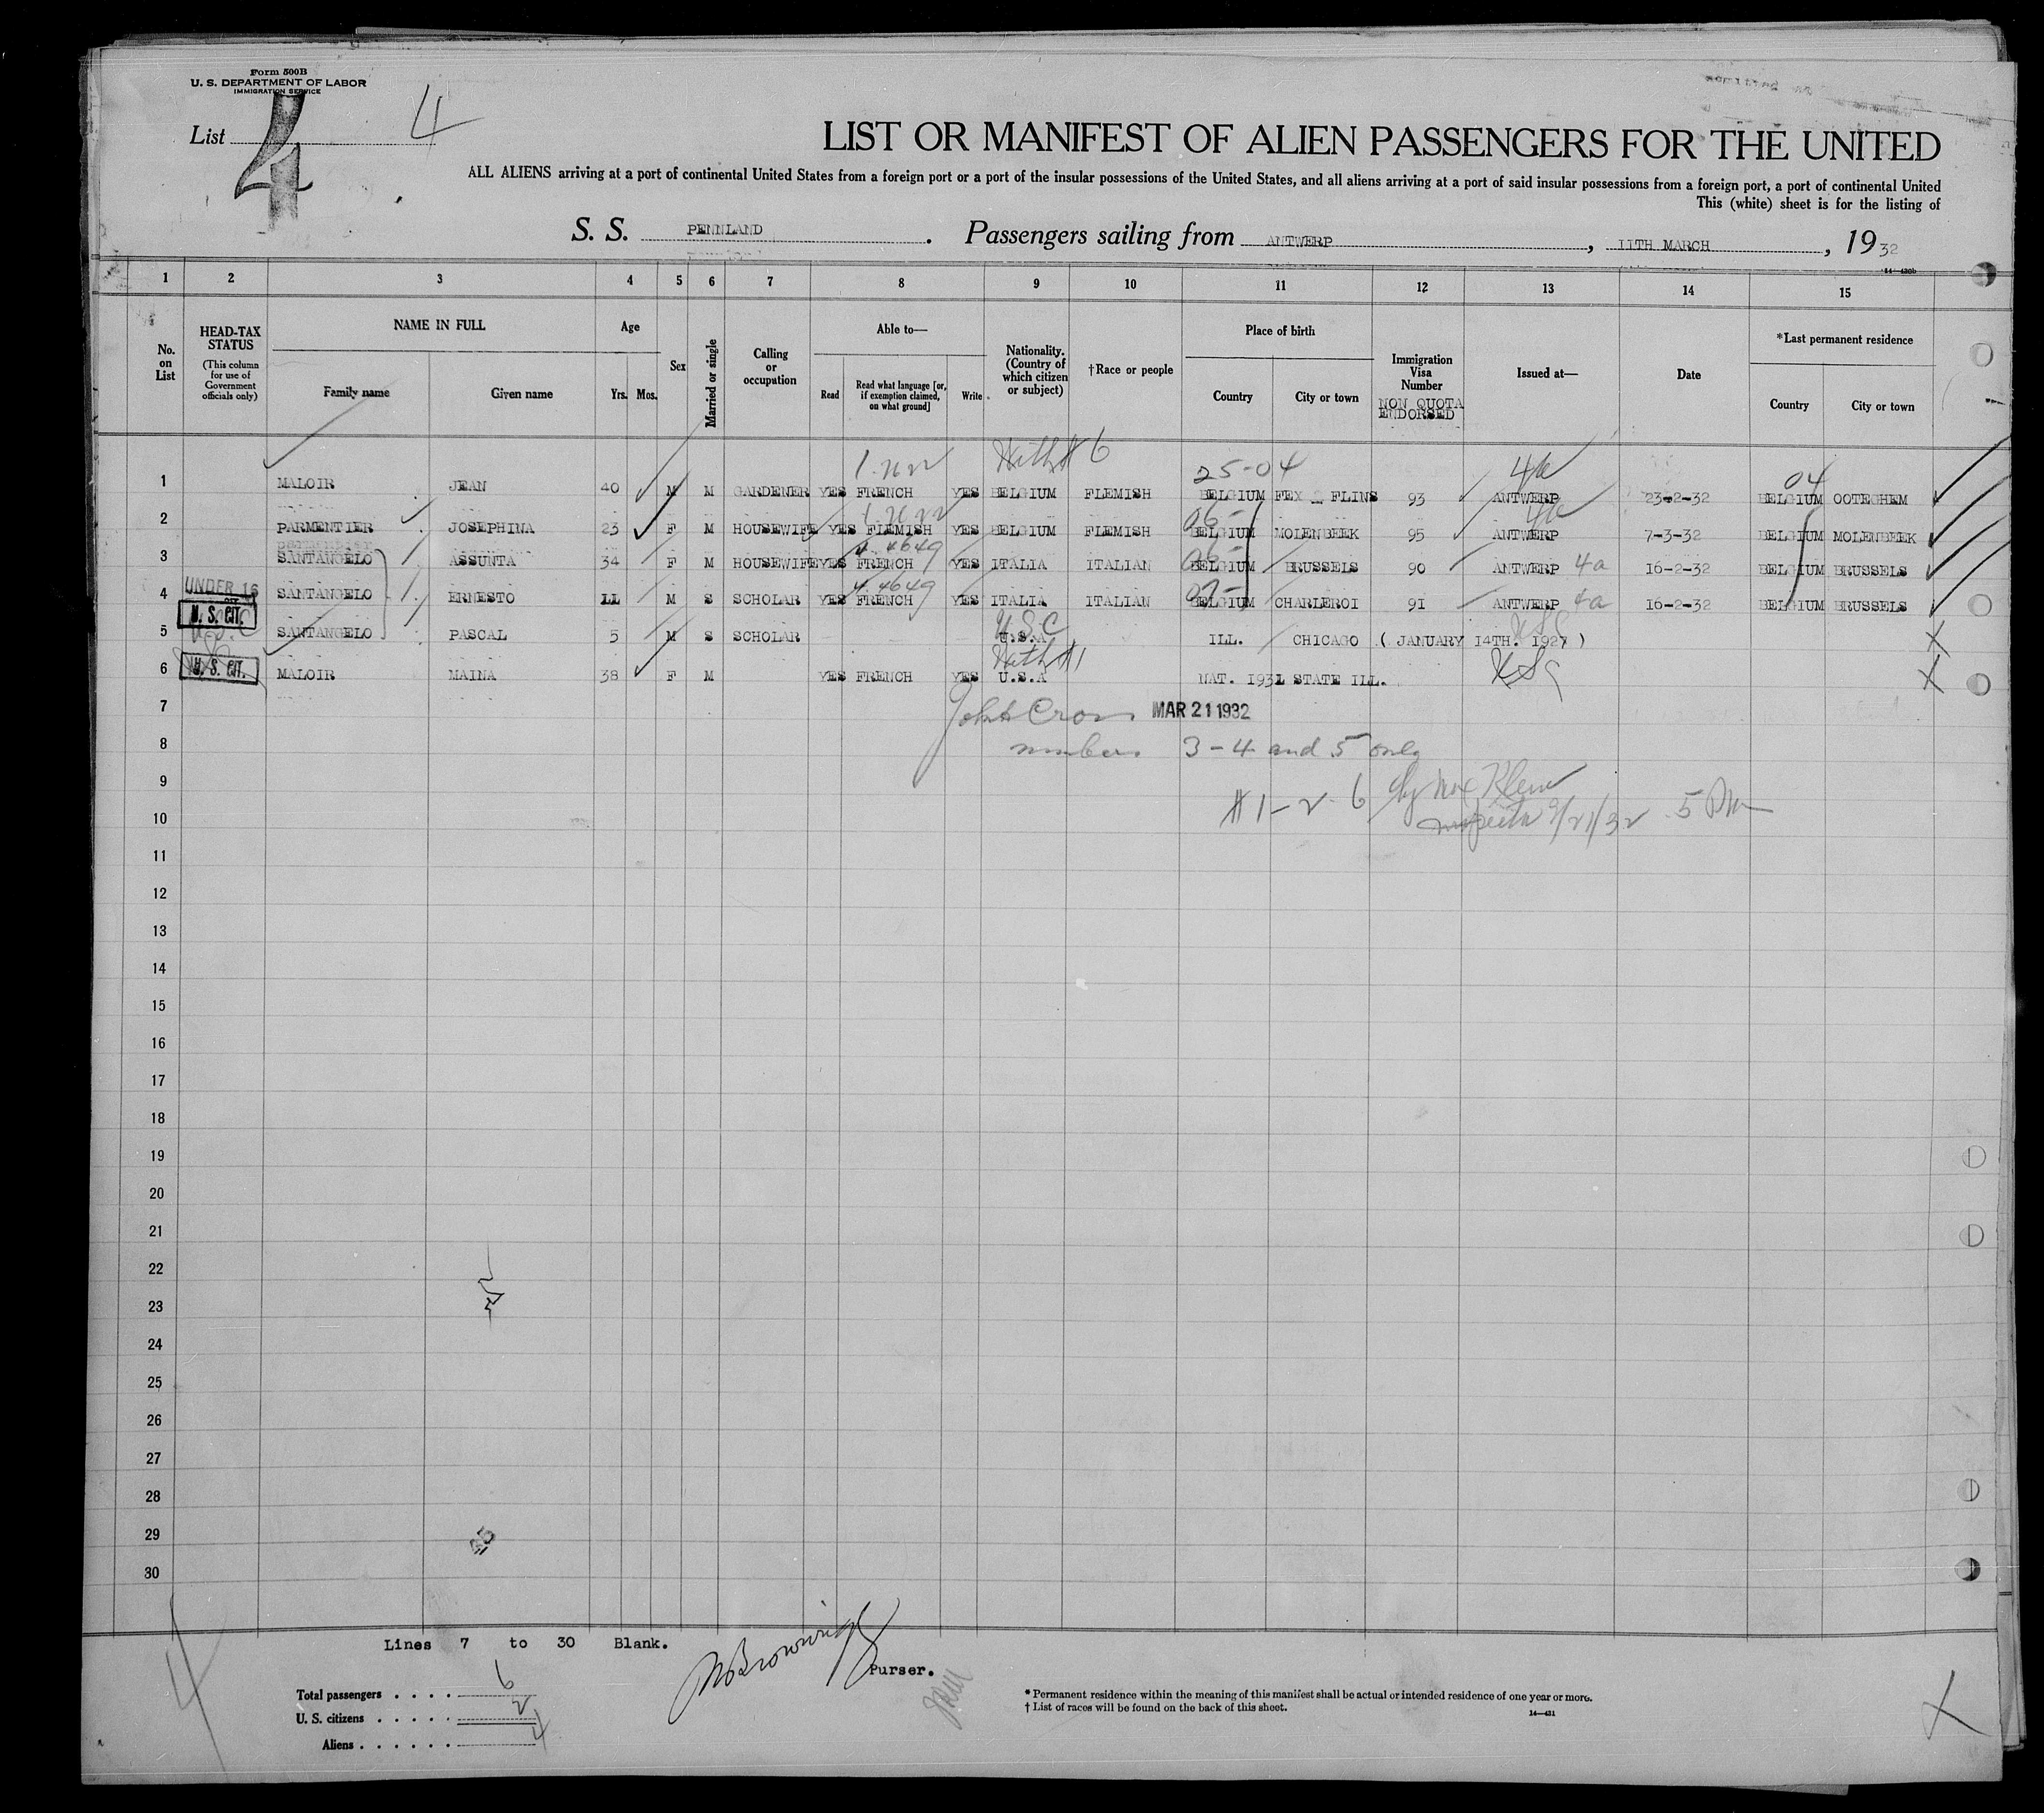 Form 500B
U. S. DEPARTMENT OF LABOR
IMMIGRATION SERVICE
List 4
4
LIST OR MANIFEST OF ALIEN PASSENGERS FOR THE UNITED
ALL ALIENS arriving at a port of continental United States from a foreign port or a port of the insular possessions of the United States, and all aliens arriving at a port of said insular possessions from a foreign port, a port of continental United
This (white) sheet is for the listing of
S. S. PENNLAND. Passengers sailing from ANTWERP, 11TH MARCH, 1932
14—430b
1 2 3 4 5 6 7 8 9 10 11 12 13 14 15
No. on List
HEAD-TAX STATUS (This column for use of Government officials only)
NAME IN FULL Family name Given name
Age Yrs. Mos.
Sex
Married or single
Calling or occupation
Able to— Read Read what language [or, if exemption claimed, on what ground] Write
Nationality. (Country of which citizen or subject)
†Race or people
Place of birth Country City or town
Immigration Visa Number NON QUOTA ENDORSED
Issued at—
Date
*Last permanent residence Country City or town
With # 6 25-04 4a 04
1 MALOIR JEAN 40 M M GARDENER YES FRENCH YES BELGIUM FLEMISH BELGIUM FEX FLINS 93 ANTWERP 23-2-32 BELGIUM OOTEGHEM
06- 4a
2 PARMENTIER JOSEPHINA 23 F M HOUSEWIFE YES FLEMISH YES BELGIUM FLEMISH BELGIUM MOLENBEEK 95 ANTWERP 7-3-32 BELGIUM MOLENBEEK
4649
3 SANTANGELO ASSUNTA 34 F M HOUSEWIFE YES FRENCH YES ITALIA ITALIAN BELGIUM BRUSSELS 90 ANTWERP 4a 16-2-32 BELGIUM BRUSSELS
UNDER 16 4649
4 SANTANGELO ERNESTO 11 M S SCHOLAR YES FRENCH YES ITALIA ITALIAN BELGIUM CHARLEROI 91 ANTWERP 4a 16-2-32 BELGIUM BRUSSELS
U. S. CIT. USC USC
5 SANTANGELO PASCAL 5 M S SCHOLAR U.S.A ILL. CHICAGO ( JANUARY 14TH. 1927 )
U. S. CIT. With #1 USC
6 MALOIR MAINA 38 F M YES FRENCH YES U.S.A NAT. 1931 STATE ILL.
7 MAR 21 1932
8 numbers 3-4 and 5 only
9
10 #1-2-6 Inspector 3/21/32 5 PM
11
12
13
14
15
16
17
18
19
20
21
22
23
24
25
26
27
28
29
30
Lines 7 to 30 Blank.
Purser.
Total passengers . . . . 6
U. S. citizens . . . . . 2
Aliens . . . . . . 4
* Permanent residence within the meaning of this manifest shall be actual or intended residence of one year or more.
† List of races will be found on the back of this sheet.
14—431